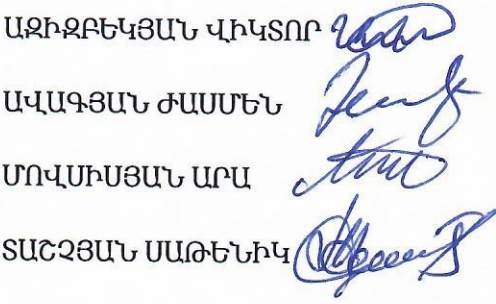 ԱԶԻԶԲԵԿՅԱՆ ՎԻԿՏՈՐ
ԱՎԱԳՅԱՆ ԺԱՍՄԵՆ
ՄՈՎՍԻՍՅԱՆ ԱՐԱ
ՏԱՇՉՅԱՆ ՍԱԹԵՆԻԿ